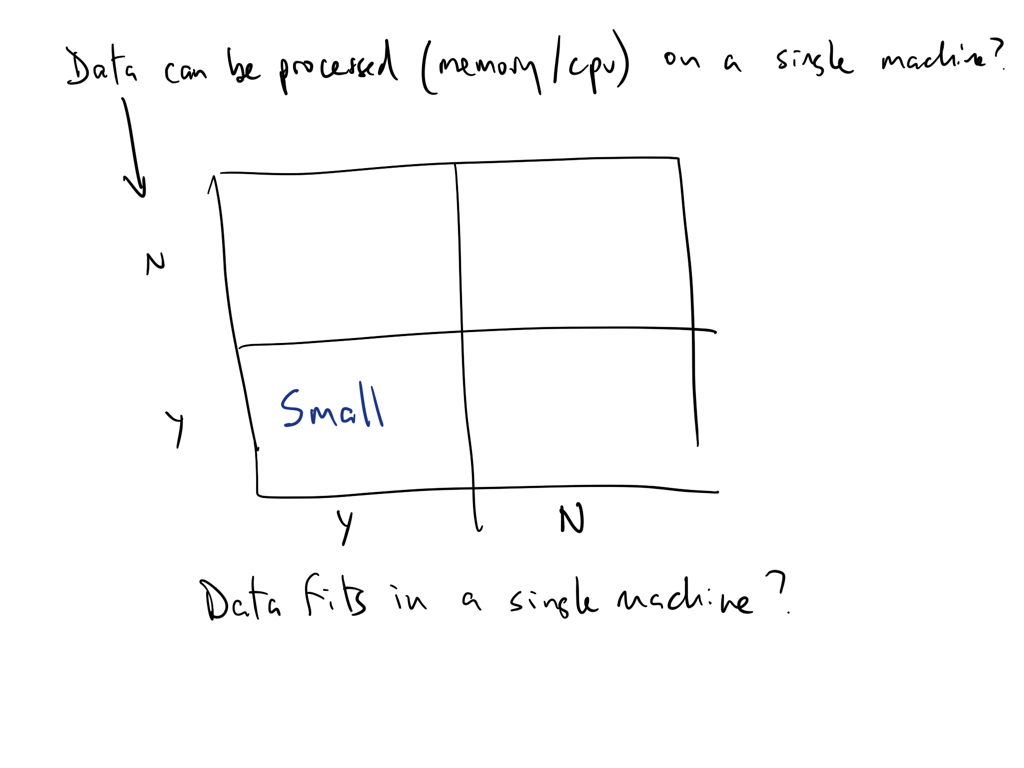 Data can be processed (memory/cpu) on a single machine?
N
Small
Y
Y N
Data fits in a single machine?